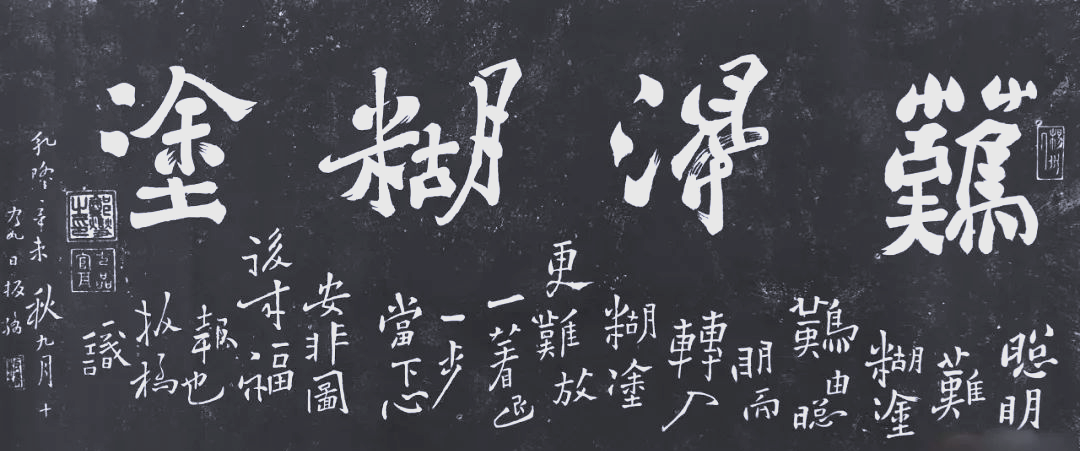 難得糊塗
聰明
難
糊塗
難由聰
明而
轉入
糊塗
更難放
一著退
一步
當下心
安非圖
後來福
報也
板橋
識
乾隆辛未秋九月十
有九日板橋
鄭燮之印
七品官耳